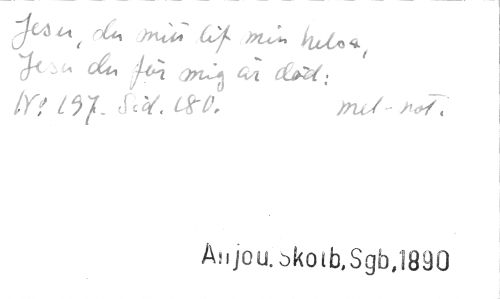 Jesu, du mitt lif min helsa,
Jesu du för mig är död:
No 197. Sid. 180. mel-not.
Anjou. Skolb, Sgb, 1890